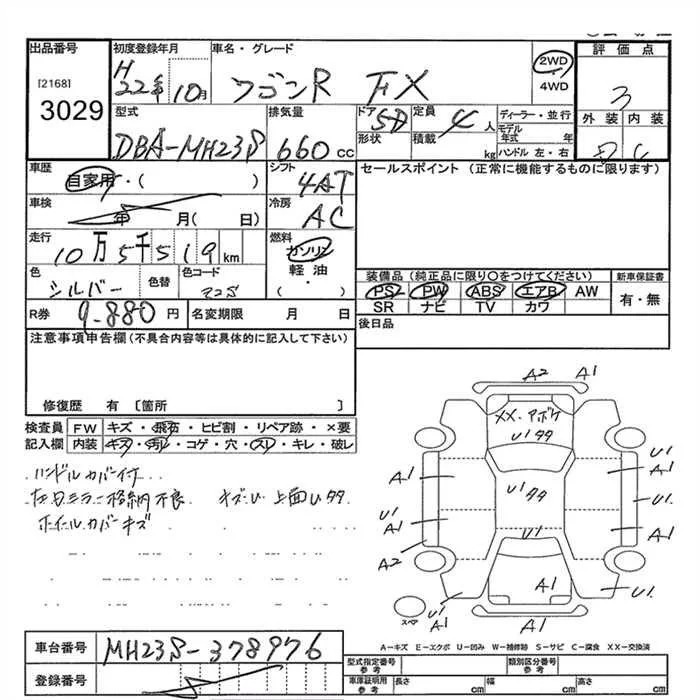 出品番号 初度登録年月 車名・グレード 評価点
[2168] 3029
H 22年 10月 ワゴンR FX 2WD 4WD 3
外装 内装
D C
型式 DBA-MH23S 排気量 660 cc ドア 5D 形状 定員 4 人 積載 kg ディーラー・並行 モデル年式 年 ハンドル 左・右
車歴 自家用・( ) シフト 4AT セールスポイント (正常に機能するものに限ります)
車検 年 月( 日) 冷房 AC
走行 10万5千519 km 燃料 ガソリン 軽油 ( ・ )
色 シルバー 色替 色コード Z2S
装備品(純正品に限り○をつけてください) 新車保証書
PS PW ABS エアB AW 有・無
SR ナビ TV カワ
R券 9.880 円 名変期限 月 日 後日品
注意事項申告欄(不具合内容等は具体的に記入して下さい)
修復歴 有 〔箇所 〕
検査員記入欄 FW キズ・飛石・ヒビ割・リペア跡・×要
内装 キズ・汚れ・コゲ・穴・スレ・キレ・破レ
ハンドルカバー付
右ミラー格納不良 上面Uタタ
ホイールカバーキズ
A2 A1
XX・アボケ
U1タタ
A1 A1
U1タタ U1
U1 A1 U1 A1
A2
A1
U1 A1 U1
スペア A1
A-キズ E-エクボ U-凹み W-補修跡 S-サビ C-腐食 XX-交換済
車台番号 MH23S-378976
登録番号
型式指定番号 参考 類別区分番号 参考
車庫証明用 参考 長さ cm 幅 cm 高さ cm